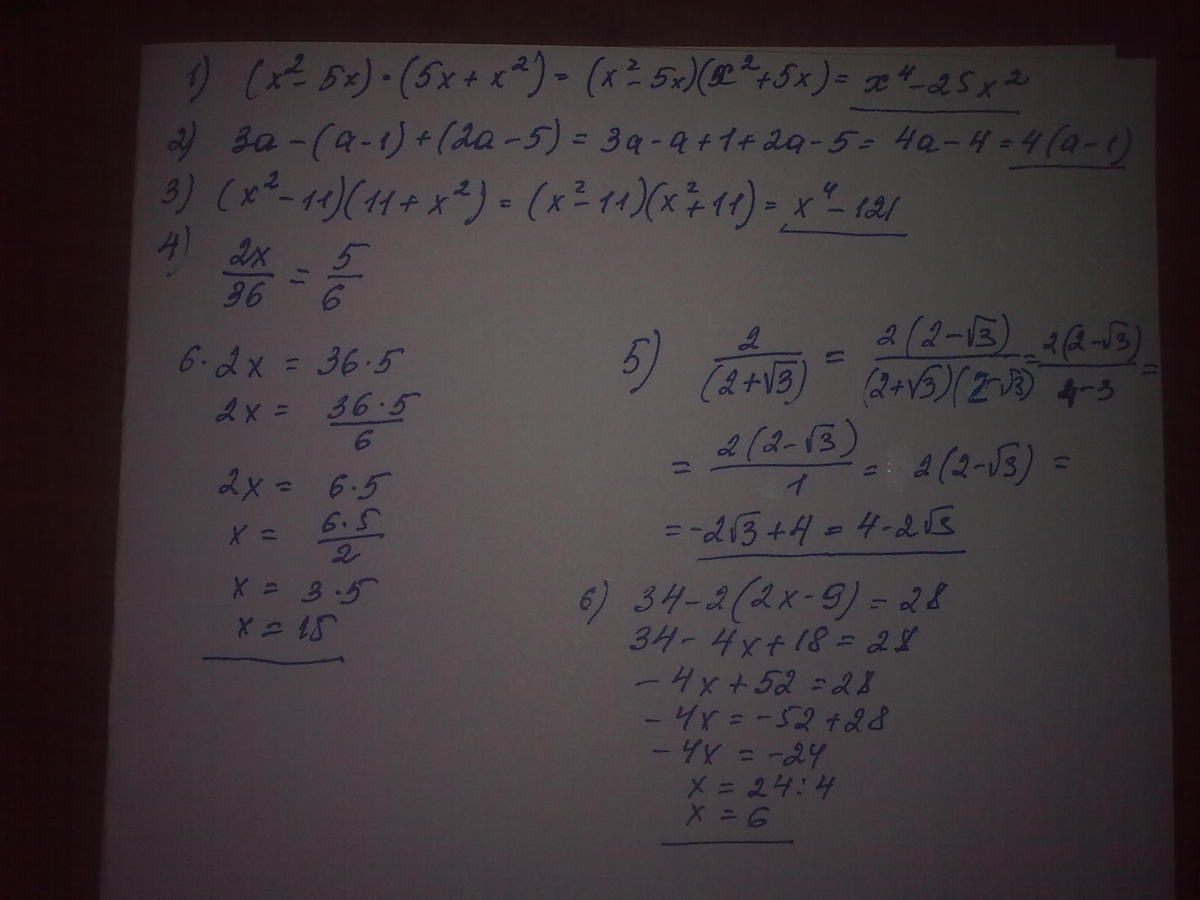 1) (x² - 5x) · (5x + x²) = (x² - 5x)(x² + 5x) = x⁴ - 25x²
2) 3a - (a - 1) + (2a - 5) = 3a - a + 1 + 2a - 5 = 4a - 4 = 4(a - 1)
3) (x² - 11)(11 + x²) = (x² - 11)(x² + 11) = x⁴ - 121
4) 2x/36 = 5/6
6 · 2x = 36 · 5
2x = 36 · 5/6
2x = 6 · 5
x = 6 · 5/2
x = 3 · 5
x = 15
5) 2/(2 + √3) = 2(2 - √3)/(2 + √3)(2 - √3) = 2(2 - √3)/4 - 3 =
= 2(2 - √3)/1 = 2(2 - √3) =
= -2√3 + 4 = 4 - 2√3
6) 34 - 2(2x - 9) = 28
34 - 4x + 18 = 28
- 4x + 52 = 28
- 4x = -52 + 28
- 4x = -24
x = 24 : 4
x = 6